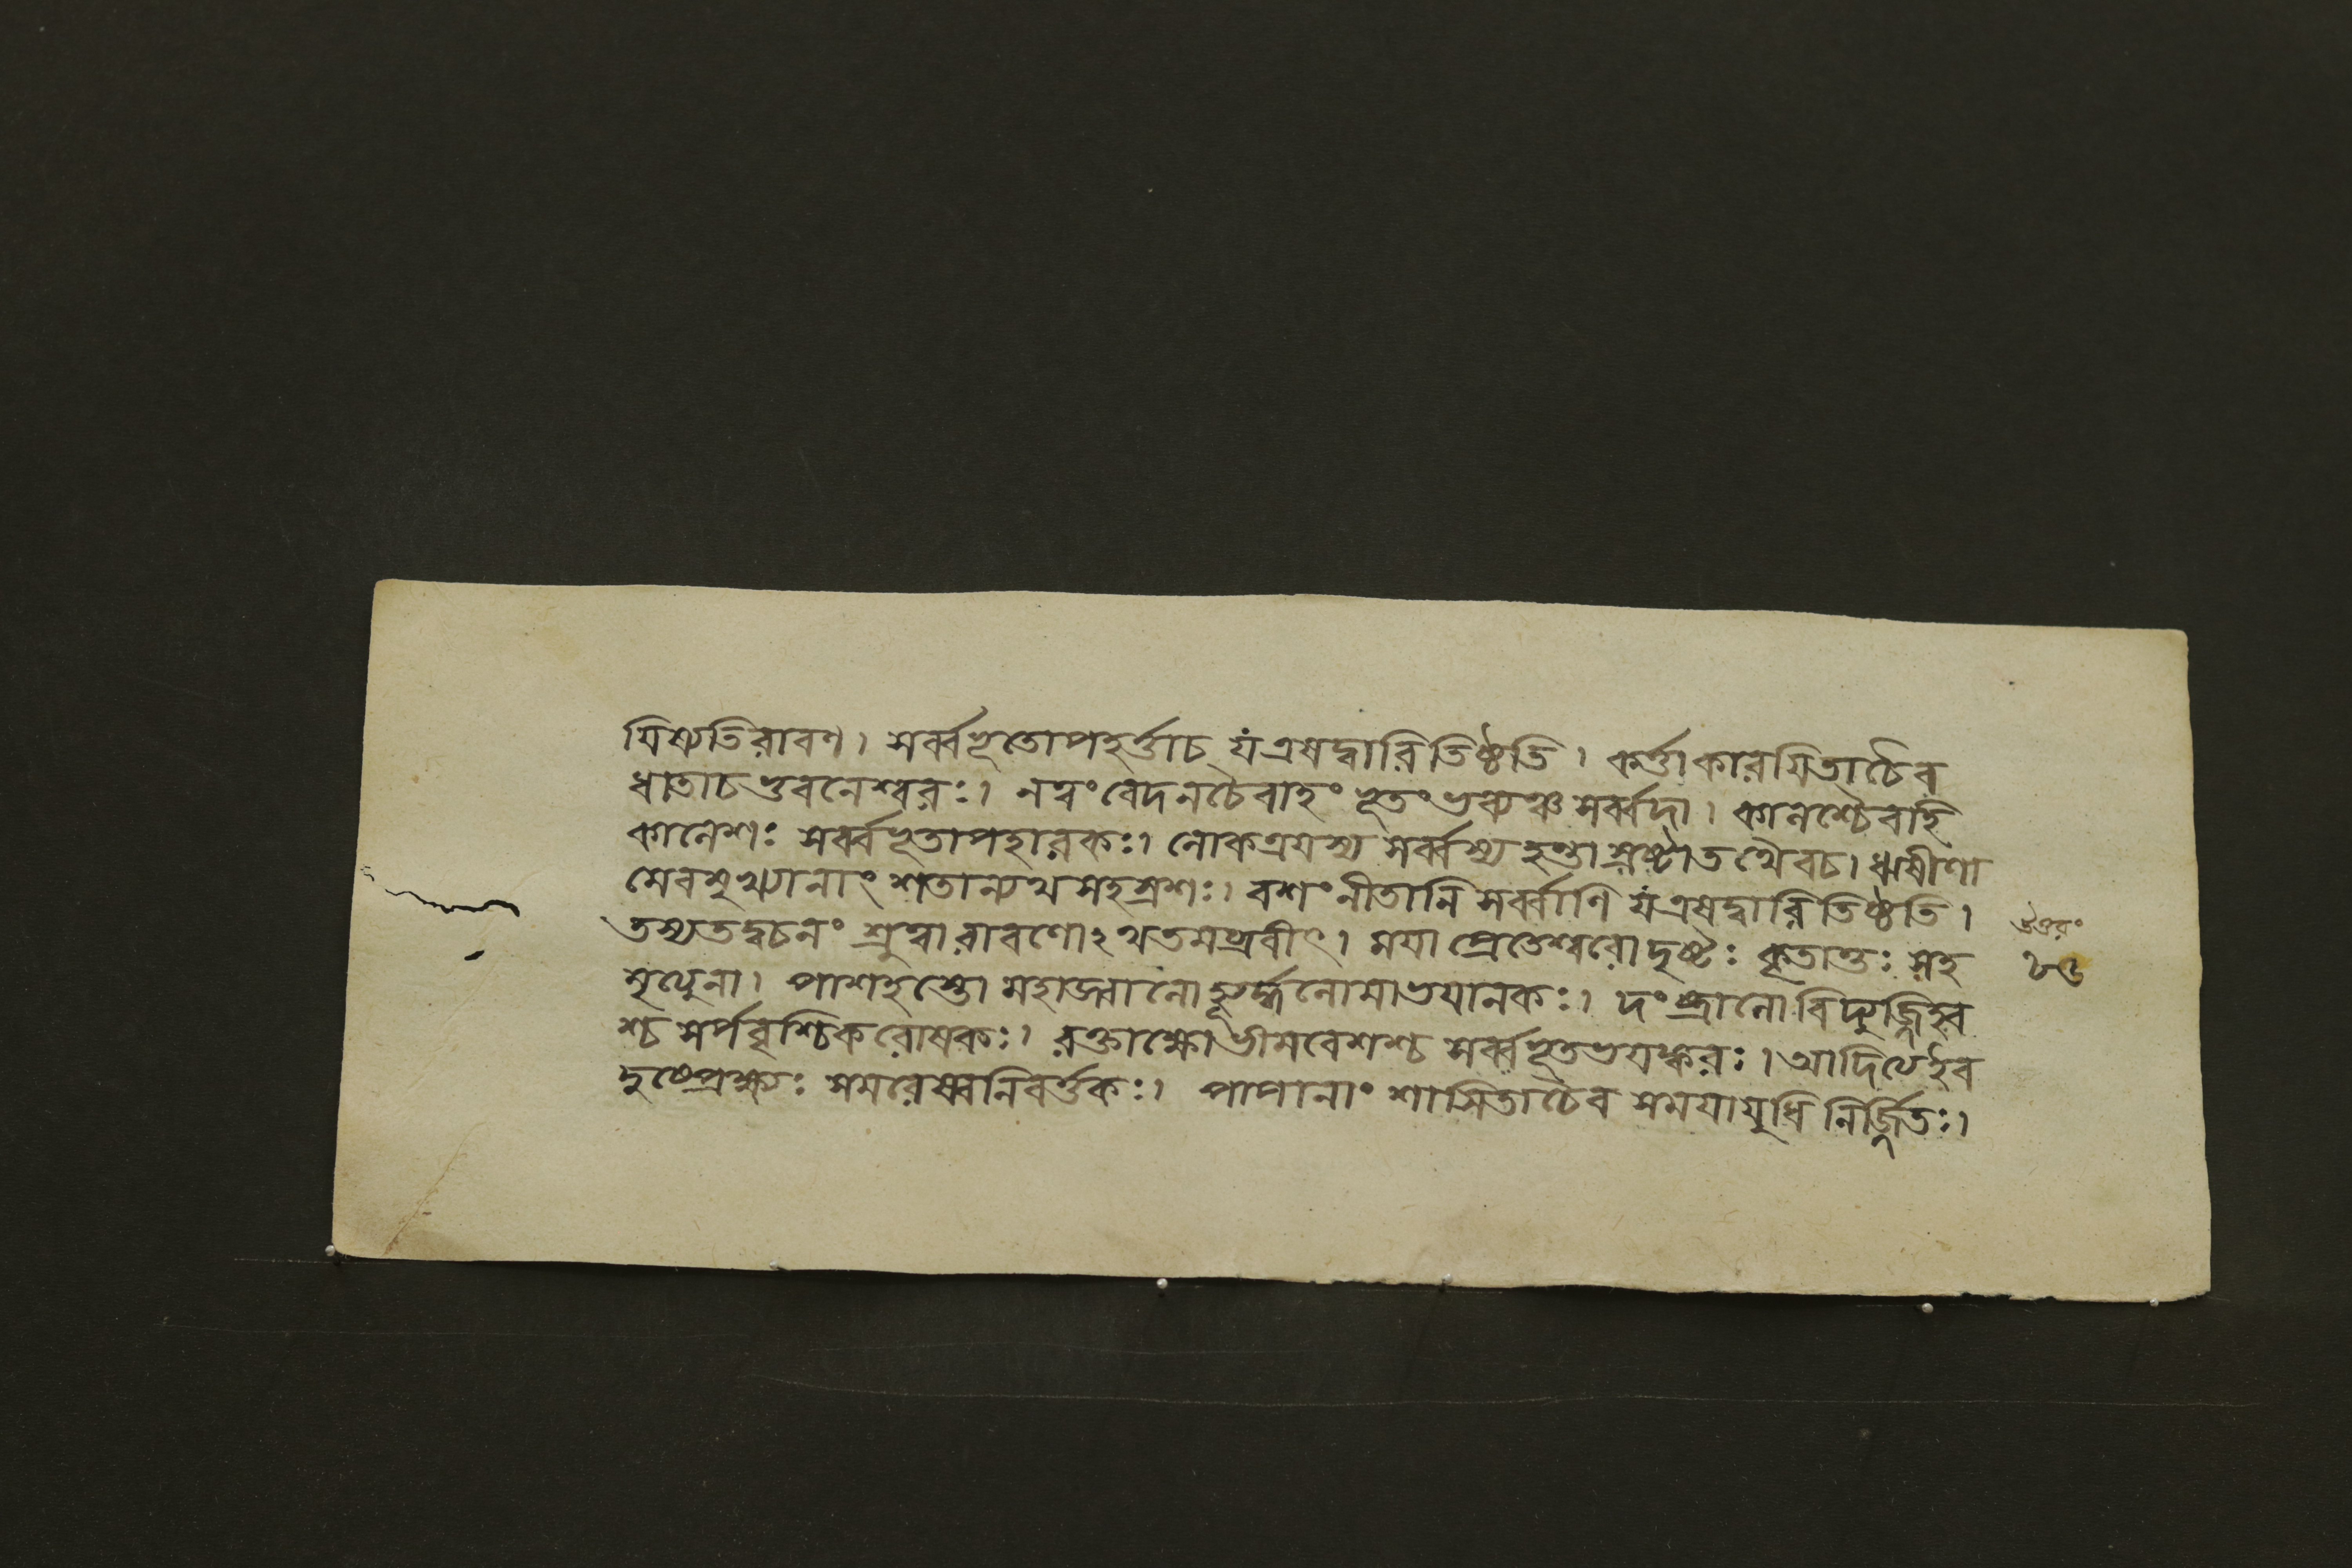 যিষ্যতিরাবণ। সর্ব্বভূতোপহর্ত্তাচ যংএষদ্বারিতিষ্ঠতি। কর্ত্তাকারযিতাচৈব
ধাতাচভুবনেশ্বরঃ। নত্বংবেদনচৈবাহং ভূতংভব্যঞ্চসর্ব্বদা। কালশ্চৈবাহি
কালেশঃ সর্ব্বভূতাপহারকঃ। লোকত্রযস্য সর্ব্বস্য হন্তাস্রষ্টাতথৈবচ। ঋষীণা
মেবমুখ্যানাং শতান্যথসহস্রশঃ। বশংনীতানি সর্ব্বাণি যংএষদ্বারিতিষ্ঠতি।
তস্যতদ্বচনং শ্রুত্বা রাবণোঽথতমব্রবীৎ। মযা প্রেতেশ্বরোদৃষ্টঃ কৃতান্তঃ সহ
মৃত্যুনা। পাশহস্তো মহাজ্বালো ভয়ানকঃ। দংষ্ট্রালো বিদ্যুজ্জিহ্ব
শ্চ সর্পবৃশ্চিকরোষকঃ। রক্তাক্ষোভীমবেশশ্চ সর্ব্বভূতভযঙ্করঃ। আদিত্যইব
দুষ্প্রেক্ষ্যঃ সমরেষ্বনিবর্ত্তকঃ। পাপানাং শাসিতাচৈব সমযাযুধি নির্জ্জিতঃ।
উত্তরং